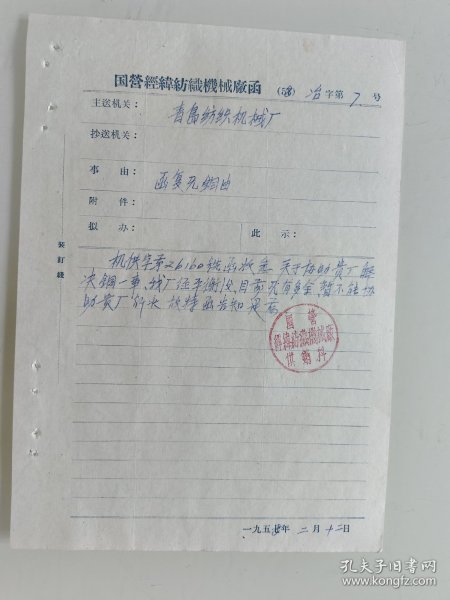 国营經緯紡織機械廠函 (58) 冶字第 7 号
主送机关： 青島纺织机械厂
抄送机关：
事由： 函复无铜由
附件：
拟办： 此示：
装訂綫
机供字第26160號函敬悉 关于协助贵厂解
决铜一事，我厂经平衡后，目前没有多余 暂不能协
助贵厂解决 故特函告知 是荷
国营
經緯紡織機械廠
供銷科
一九五 年 二月十二日
孔夫子旧书网
www.kongfz.com